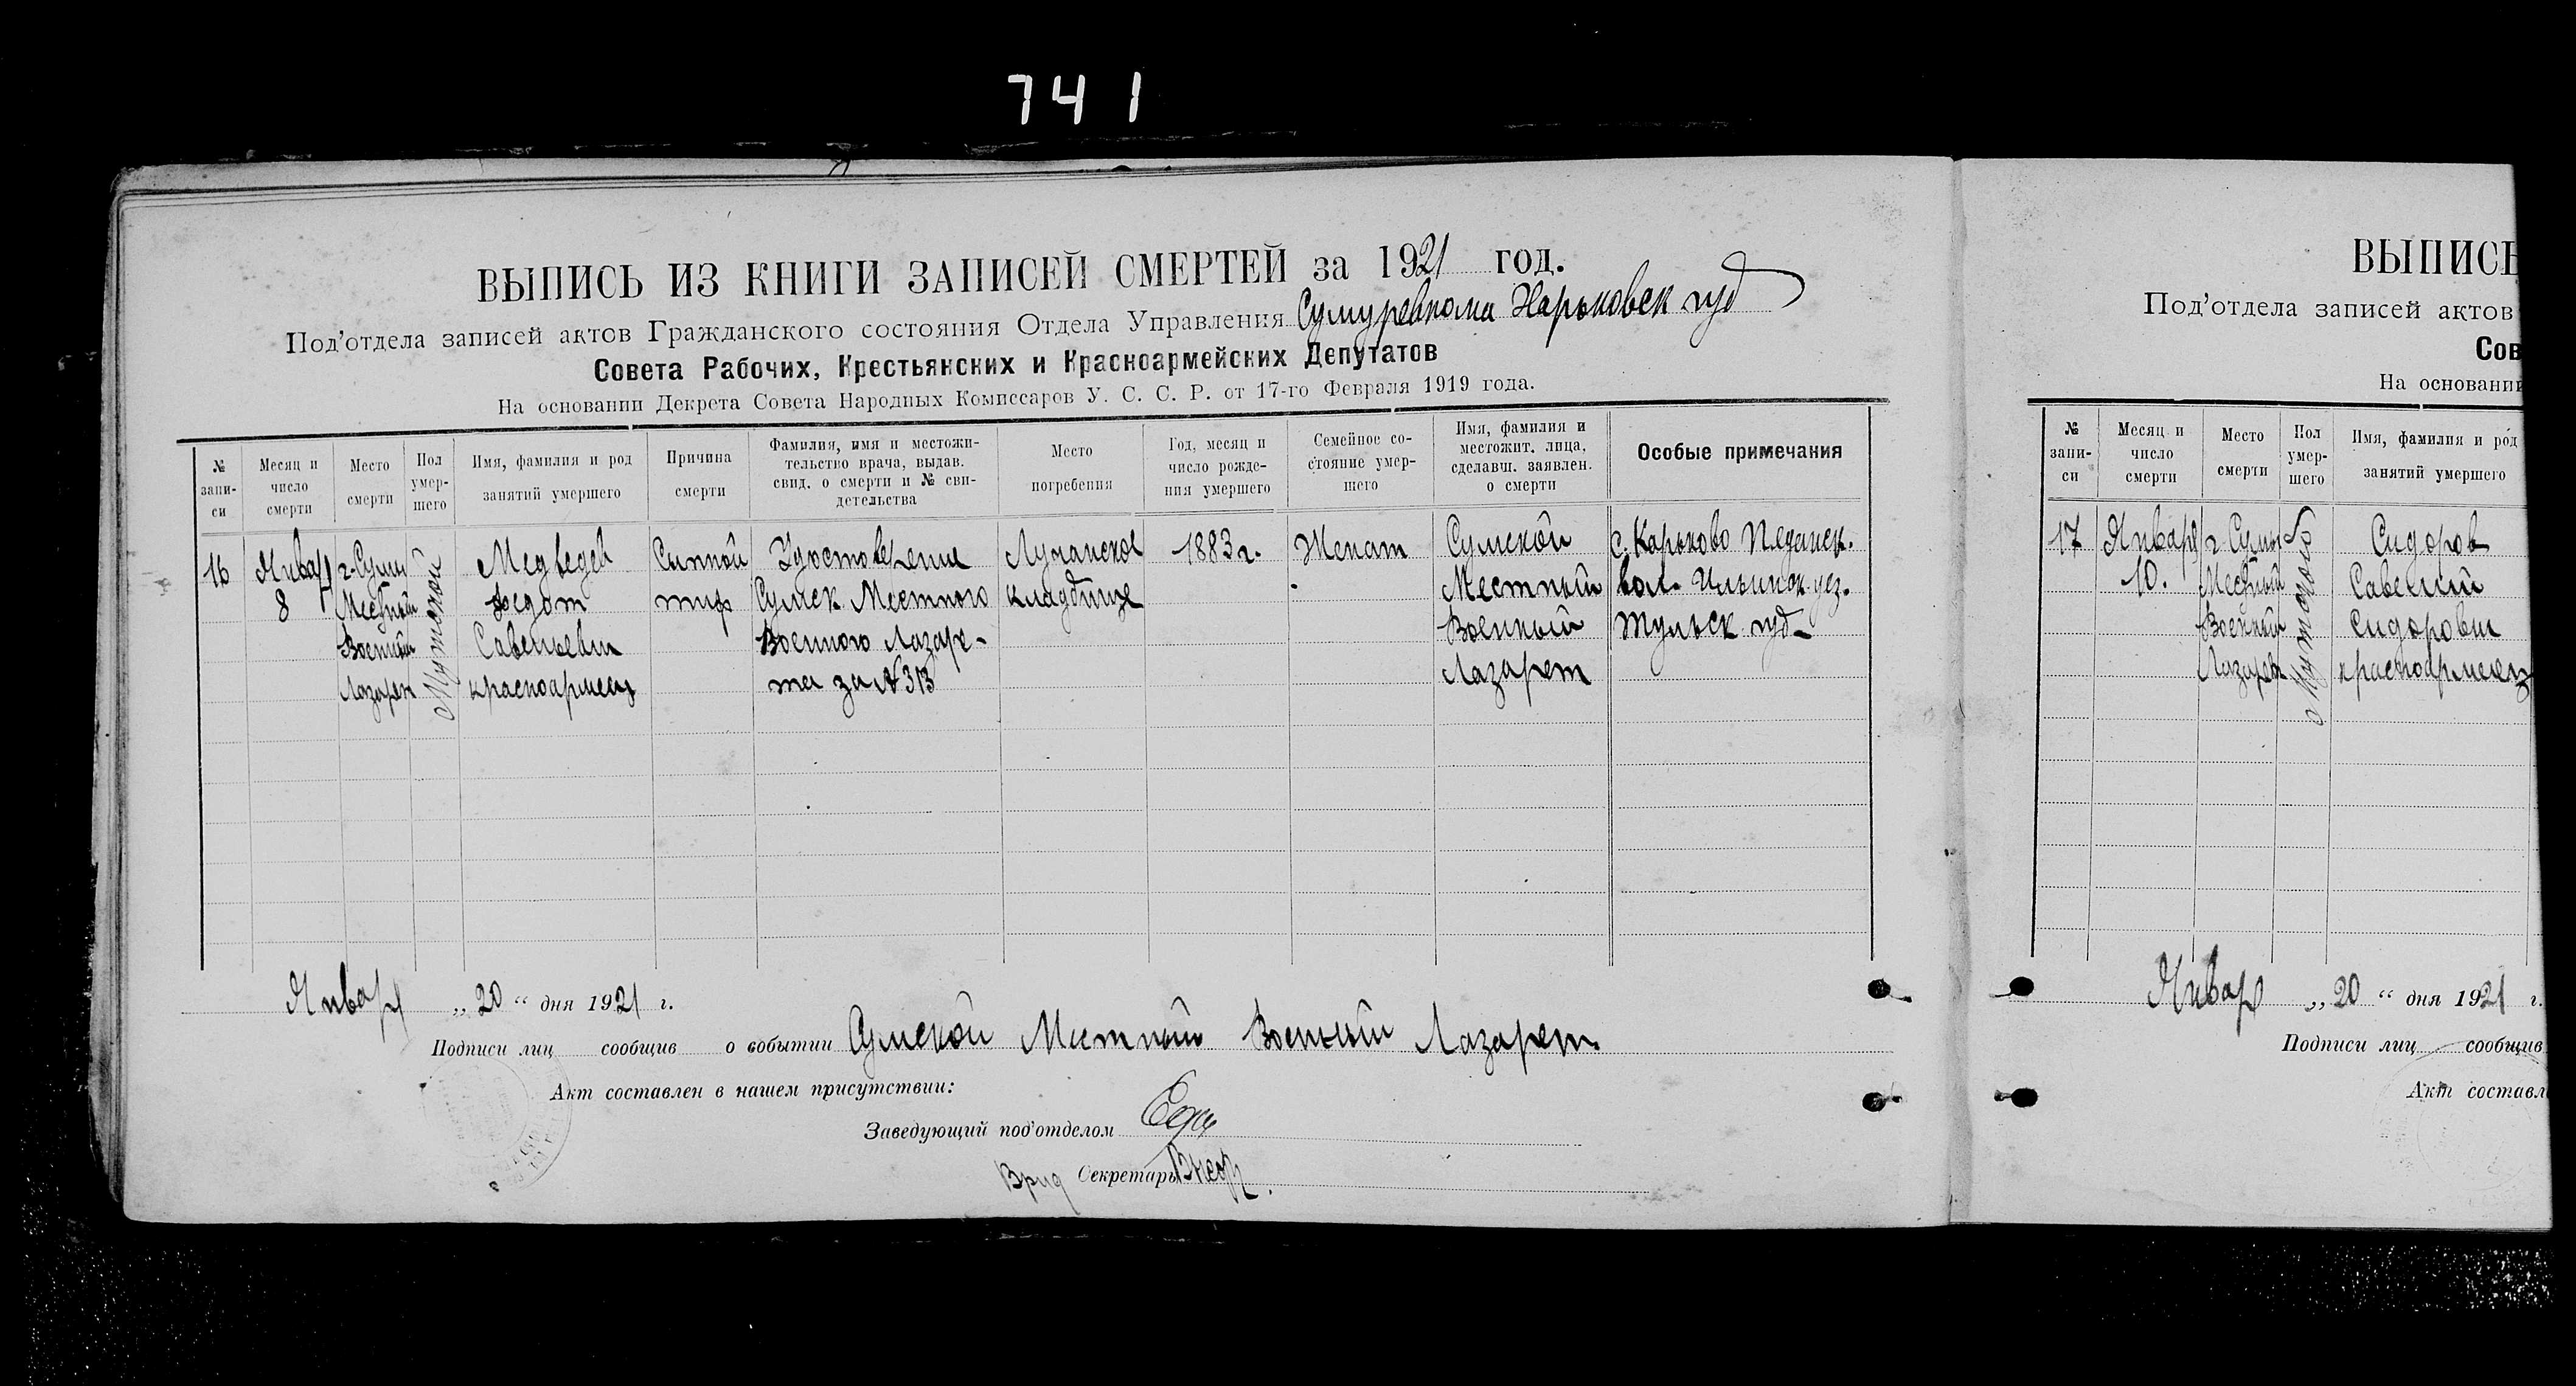 741
ВЫПИСЬ ИЗ КНИГИ ЗАПИСЕЙ СМЕРТЕЙ за 1921 год.
Под'отдела записей актов Гражданского состояния Отдела Управления Сумуревкома Харьковск губ
Совета Рабочих, Крестьянских и Красноармейских Депутатов
На основании Декрета Совета Народных Комиссаров У. С. С. Р. от 17-го Февраля 1919 года.
№ запи-си
Месяц и число смерти
Место смерти
Пол умер-шего
Имя, фамилия и род занятий умершего
Причина смерти
Фамилия, имя и местожи-тельство врача, выдав. свид. о смерти и № сви-детельства
Место погребения
Год, месяц и число рожде-ния умершего
Семейное со-стояние умер-шего
Имя, фамилия и местожит. лица, сделавш. заявлен. о смерти
Особые примечания
16
Январ
8
г. Сумы
Местный
Военный
Лазарет
Мужской
Медведев
Федот
Савельевич
красноармеец
Сипной
тиф
Удостоверение
Сумск Местного
Военного Лазаре-
та за № 313
Лучанское
кладбище
1883 г.
Женат
Сумской
Местный
Военный
Лазарет
с. Карьково
вол.
Тульск губ.
Январ „20“ дня 1921 г.
Подписи лиц сообщив о событии Сумской Местный Военный Лазарет
Акт составлен в нашем присутствии:
Заведующий под'отделом
Врид Секретарь
ВЫПИСЬ
Под'отдела записей актов
Сов
На основании
№ запи-си
Месяц и число смерти
Место смерти
Пол умер-шего
Имя, фамилия и род занятий умершего
17
Январ
10.
г. Сумы
Местный
Военный
Лазарет
Сидоров
Савелий
Сидорович
красноармеец
Январ „20“ дня 1921 г.
Подписи лиц сообщив
Акт составл